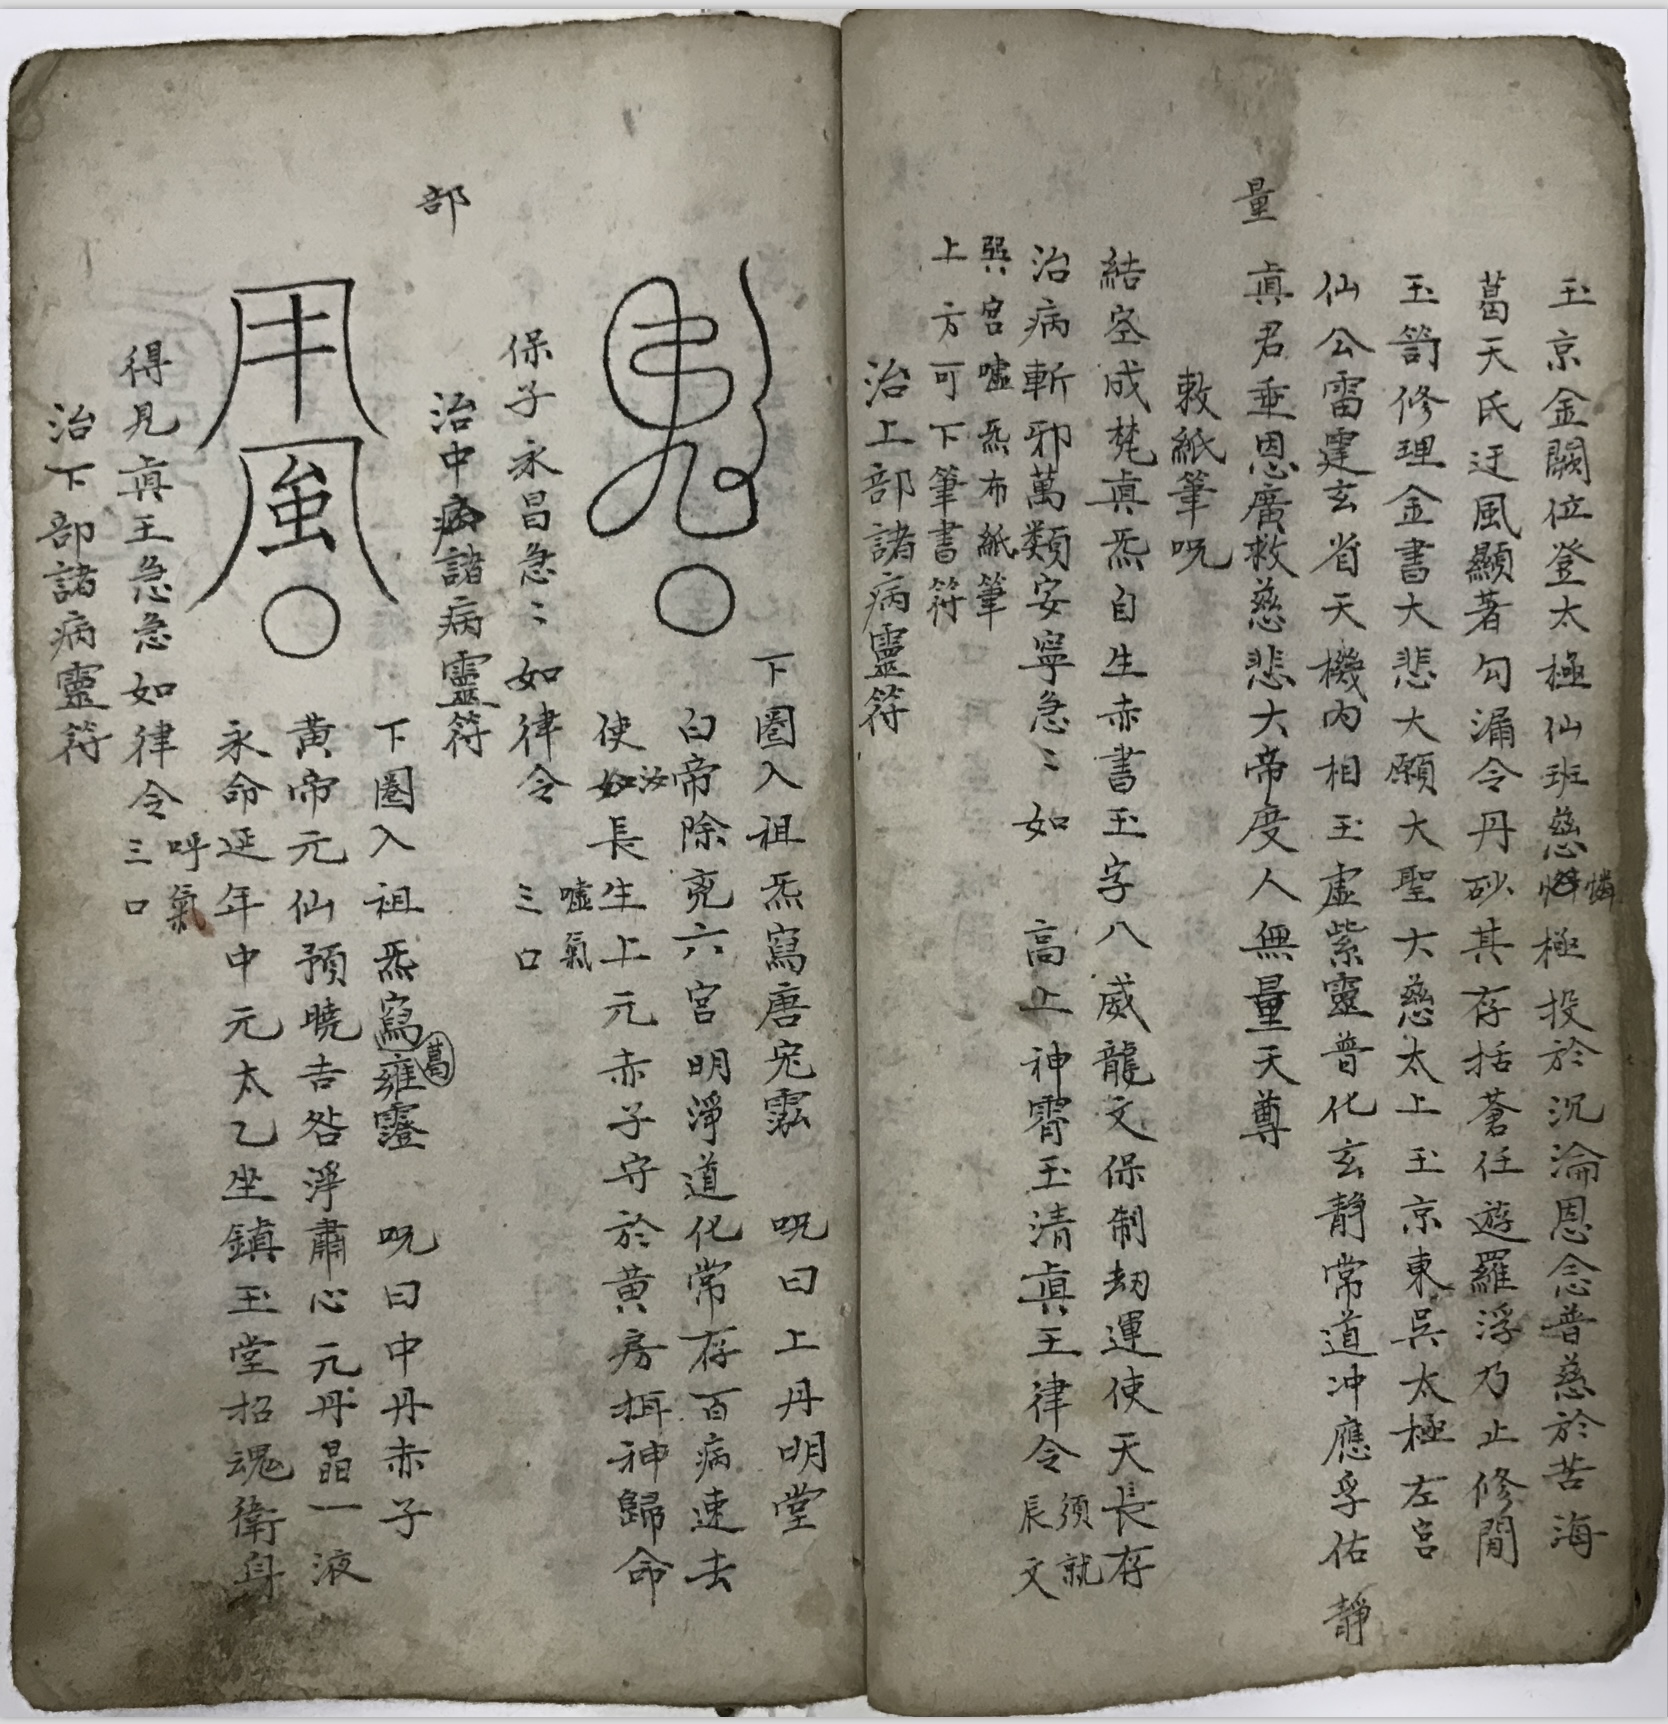 玉京金闕位登太極仙班慈憐極投於沉淪恩念普慈於苦海
葛天氏迂風顯著勾漏令丹砂其存括蒼任遊羅浮乃止修閒
玉笥修理金書大悲大願大聖大慈太上玉京東吳太極左宮
仙公雷霆玄省天機內相玉虛紫靈普化玄靜常道冲應孚佑靜
真君垂恩廣救慈悲大帝度人無量天尊
量
敕紙筆呪
結空成梵真炁自生赤書玉字八威龍文保制劫運使天長存
治病斬邪萬類安寧急〻如 高上神霄玉清真王律令
須就
辰文
巽宮噓炁布紙筆
上方可下筆書符
治上部諸病靈符
下圈入祖炁寫唐宛 呪曰上丹明堂
白帝除兇六宮明淨道化常存百病速去
使汝長生上元赤子守於黃房 神歸命
保子永昌急〻如律令
噓氣
三口
部
治中病諸病靈符
下圈入祖炁寫雍 呪曰中丹赤子
葛
黃帝元仙預曉吉咎淨肅心元丹晶一液
永命延年中元太乙坐鎮玉堂招魂衛身
得見真王急急如律令
呼氣
三口
治下部諸病靈符